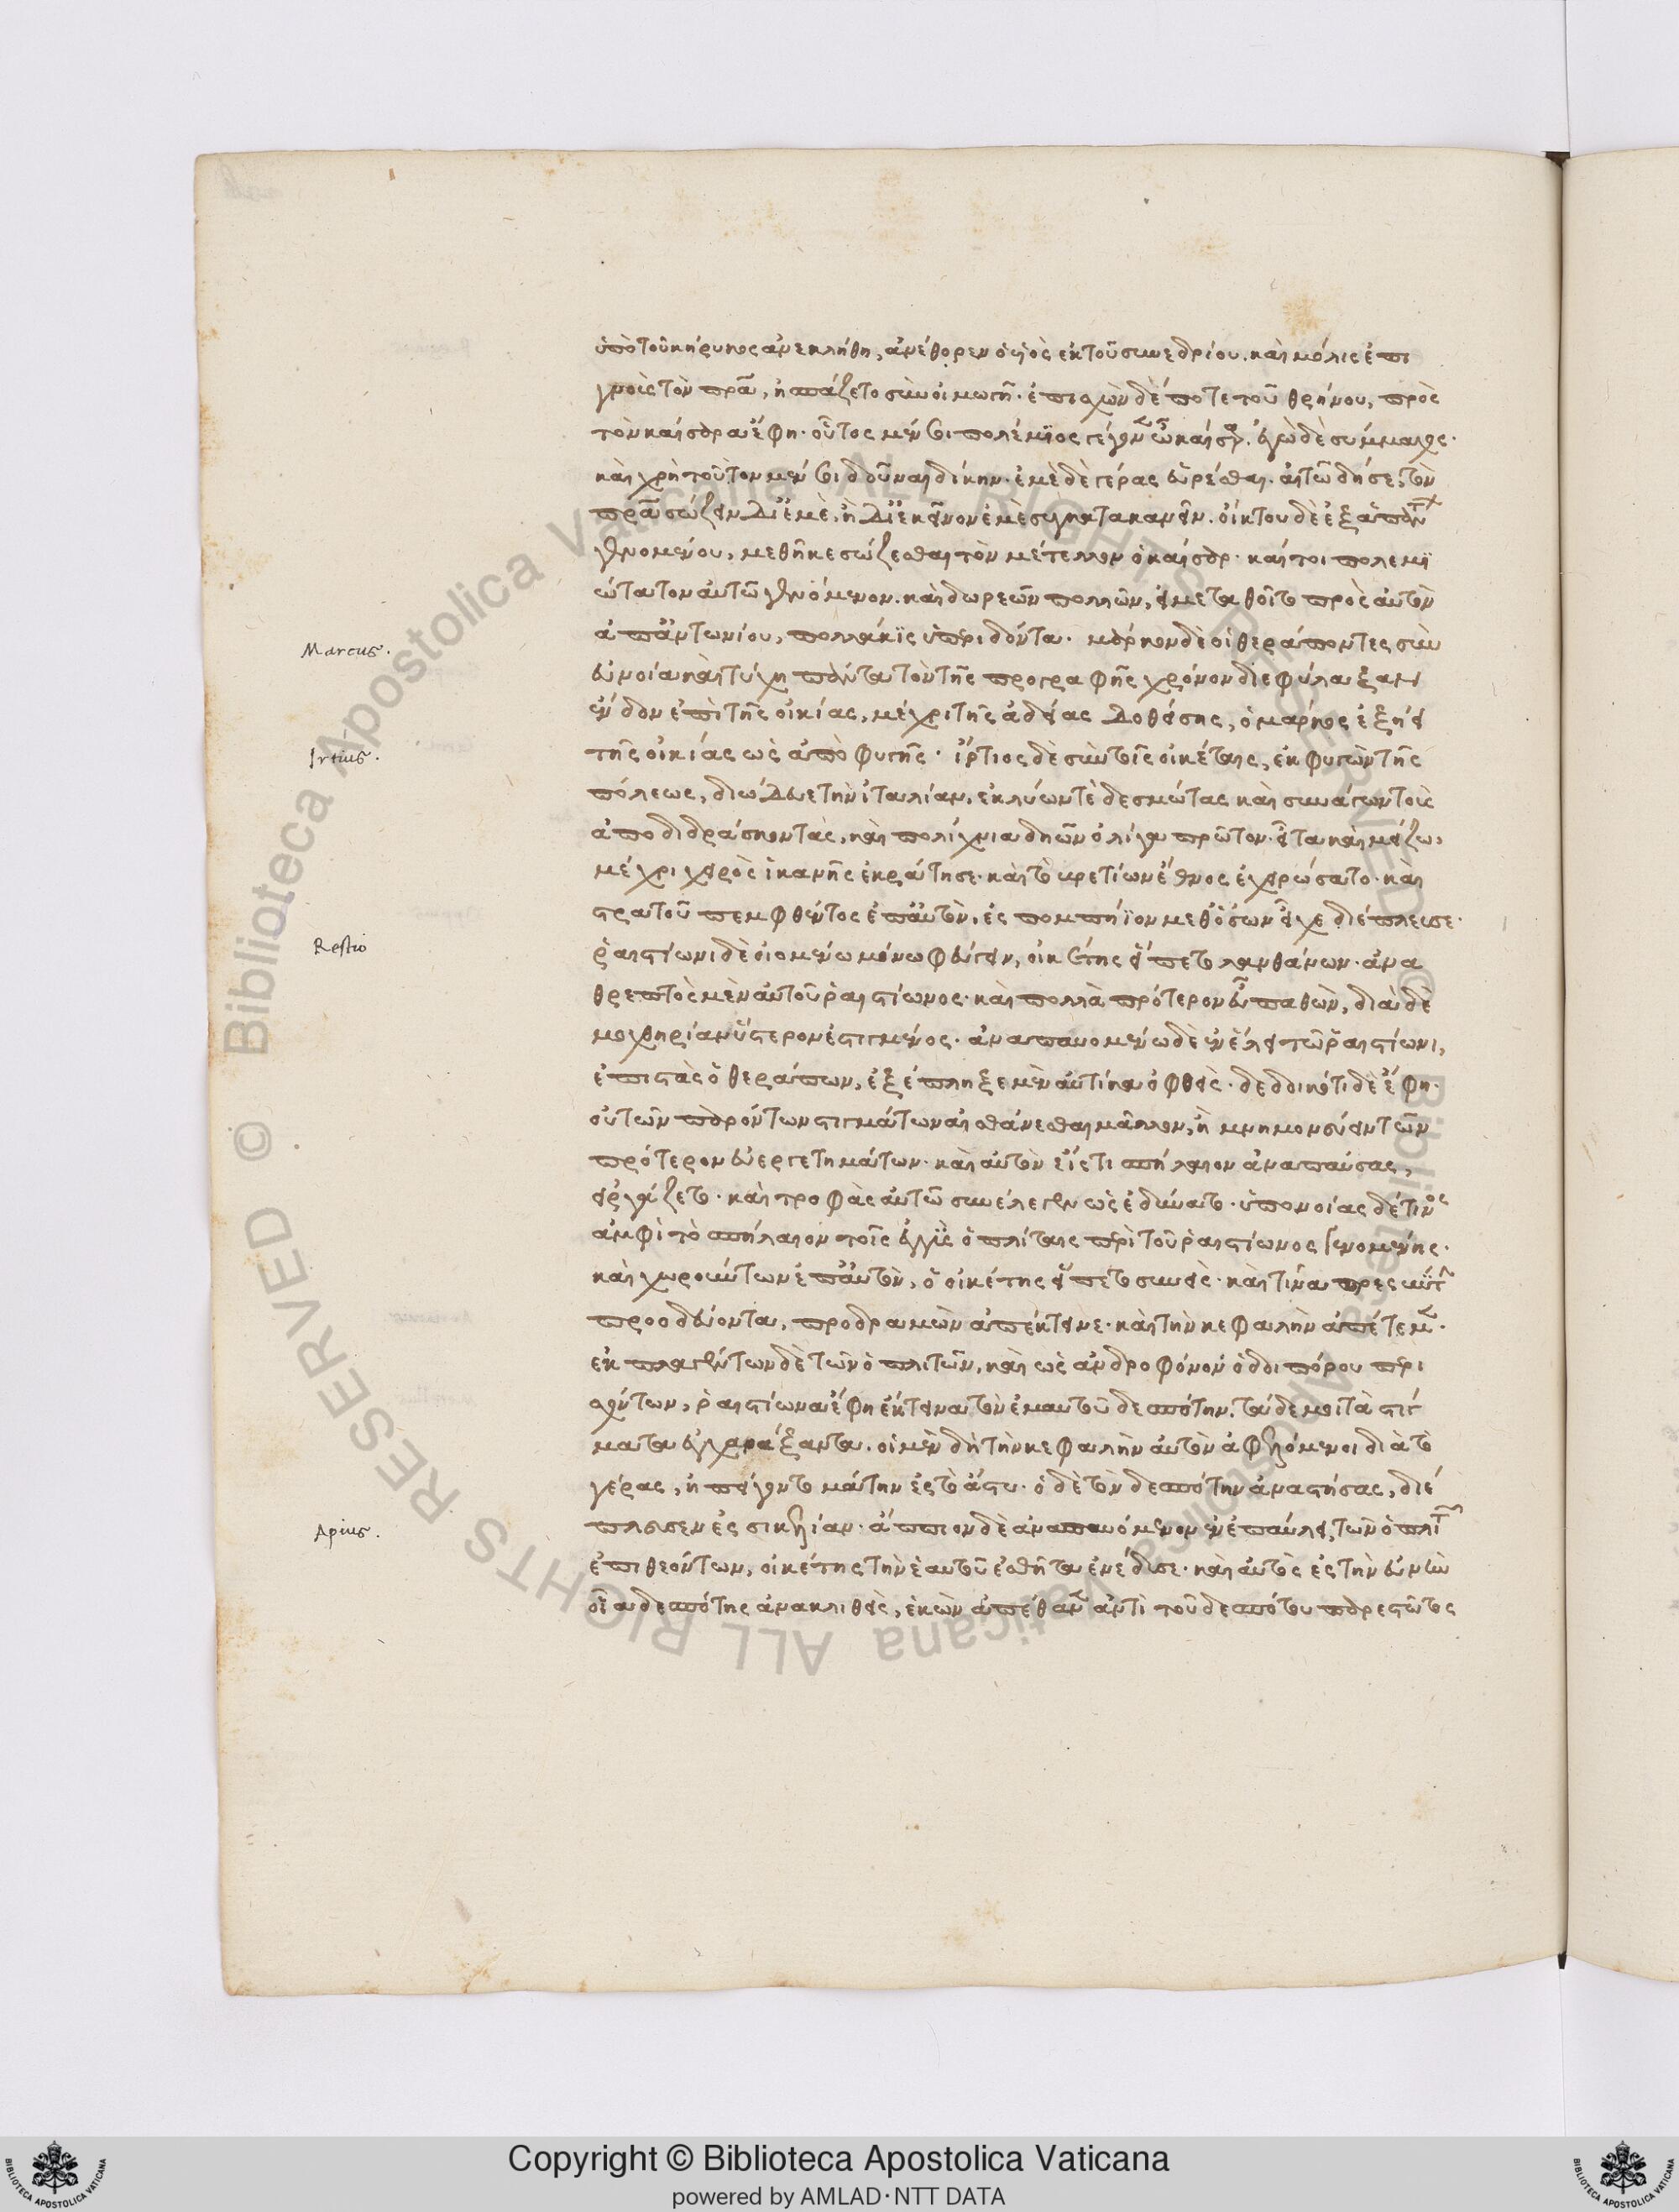 ὑπὸ τοῦ κήρυκος ἀνεκλήθη, ἀνέθορεν ὁ υἱὸς ἐκ τοῦ συνεδρίου. καὶ μόλις ἐπι
γνοὺς τὸν πρα, ἠσπάζετο σὺν οἰμωγῆ. ἐπισχὼν δέ ποτε τοῦ θρήνου, πρὸς
τὸν καίσαρα ἔφη. οὗτος μέν σοι πολέμϊος γέγονεν ὦ καίσαρ. ἐγὼ δὲ σύμμαχος.
καὶ χρὴ τοῦτον μέν σοι δοῦναι δίκην. ἐμὲ δὲ γέρας εὑρέσθαι. αἰτῶ δή σε, τὸν
πρα σώζειν δι' ἐμὲ, ἢ δι' ἐκεῖνον ἐμὲ συγκατακανεῖν. οἴκτου δὲ ἐξ ἁπάντων
γενομένου, μεθῆκε σώζεσθαι τὸν μέτελλον ὁ καίσαρ. καίτοι πολεμϊ
ώτατον αὐτῶ γενόμενον. καὶ δωρεῶν πολλῶν, εἰ μεταθοῖτο πρὸς αὐτὸν
ἀπ' ἀντωνίου, πολλάκϊς ὑπεριδόντα. μάρκον δὲ οἱ θεράποντες σὺν
Marcus.
εὐνοία καὶ τύχη πάντα τὸν τῆς προγραφῆς χρόνον διεφύλαξαν
ἔνδον ἐπὶ τῆς οἰκίας, μέχρι τῆς ἀδείας δοθείσης, ὁ μάρκος ἐξήει
τῆς οἰκίας ὡς ἀπὸ φυγῆς. ἴρτιος δὲ σὺν τοῖς οἰκέταις, ἐκφυγὼν τῆς
Irtius.
πόλεως, διώδευε τὴν ἰταλίαν, ἐκλύων τὲ δεσμώτας καὶ συνάγων τοὺς
ἀποδιδράσκοντας, καὶ πολίχνια δηῶν ὀλίγα πρῶτον. εἶτα καὶ μείζω,
μέχρι χειρὸς ἱκανῆς ἐκράτησε. καὶ τὸ βρετίων ἔθνος ἐχειρώσατο. καὶ
στρατοῦ πεμφθέντος ἐπ' αὐτὸν, ἐς πομπήϊον μεθ' ὅσων εἶχε διέπλευσε.
ῥαιστίωνι δὲ οἰομένω μόνω φεύγειν, οἰκέτης εἵπετο λανθάνων. ἀνα
Restio
θρεπτὸς μὲν αὐτοῦ ῥαιστίωνος. καὶ πολλὰ πρότερον εὖ παθὼν, διὰ δὲ
μοχθηρίαν ὕστερον ἐστιγμένος. ἀναπαυομένω δὲ ἐν ἕλει τῶ ῥαιστίωνι,
ἐπιστὰς ὁ θεράπων, ἐξέπληξε μὲν αὐτίκα ὀφθεὶς. δεδοικότι δὲ ἔφη.
οὐ τῶν παρόντων στιγμάτων αἰσθάνεσθαι μᾶλλον, ἢ μνημονεύειν τῶν
πρότερον εὐεργετημάτων. καὶ αὐτὸν εἴς τι σπήλαιον ἀναπαύσας,
εἰργάζετο. καὶ τροφὰς αὐτῶ συνέλεγεν ὡς ἐδύνατο. ὑπονοίας δέ τινος
ἀμφὶ τὸ σπήλαιον τοῖς ἐγγὺς ὁπλίταις περὶ τοῦ ῥαιστίωνος γενομένης.
καὶ χωρούντων ἐπ' αὐτὸν, ὁ οἰκέτης εἵπετο συνεὶς. καί τινα πρεσβύτην
προοδεύοντα, προδραμὼν ἀπέκτεινε. καὶ τὴν κεφαλὴν ἀπέτεμεν.
ἐκπλαγέντων δὲ τῶν ὁπλιτῶν, καὶ ὡς ἀνδροφόνον ὁδοιπόρου περι
σχόντων, ῥαιστίωνα ἔφη ἔκτεινα τὸν ἐμαυτοῦ δεσπότην. τάδε μοι τὰ στίγ
ματα ἐγχαράξαντα. οἱ μὲν δὴ τὴν κεφαλὴν αὐτὸν ἀφελόμενοι διὰ τὸ
γέρας, ἠπείγοντο μάτην ἐς τὸ ἄστυ. ὁ δὲ τὸν δεσπότην ἀναστήσας, διέ
πλευσεν ἐς σικελίαν. ἄππιον δὲ ἀναπαυόμενον ἐν ἐπαύλει, τῶν ὁπλιτῶν
Apius.
ἐπιθεόντων, οἰκέτης τὴν ἑαυτοῦ ἐσθῆτα ἐνέδυσε. καὶ αὐτὸς ἐς τὴν εὐνὴν
οἷα δεσπότης ἀνακλιθεὶς, ἑκὼν ἀπέθανεν ἀντὶ τοῦ δεσπότου παρεστῶτος
Copyright © Biblioteca Apostolica Vaticana
powered by AMLAD·NTT DATA